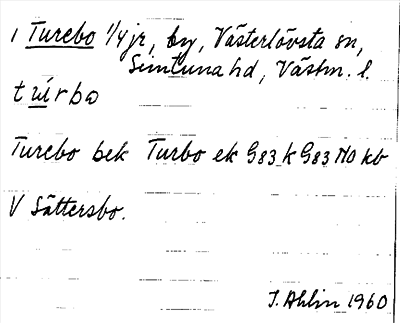 1 Turebo 1/4 jr, by, Västerlövsta sn,
Simtuna hd, Västm. l.
tu̇rbo
Turebo bek Turbo ek G83 k G83 NO kb
V Sättersbo.
J. Ahlin 1960